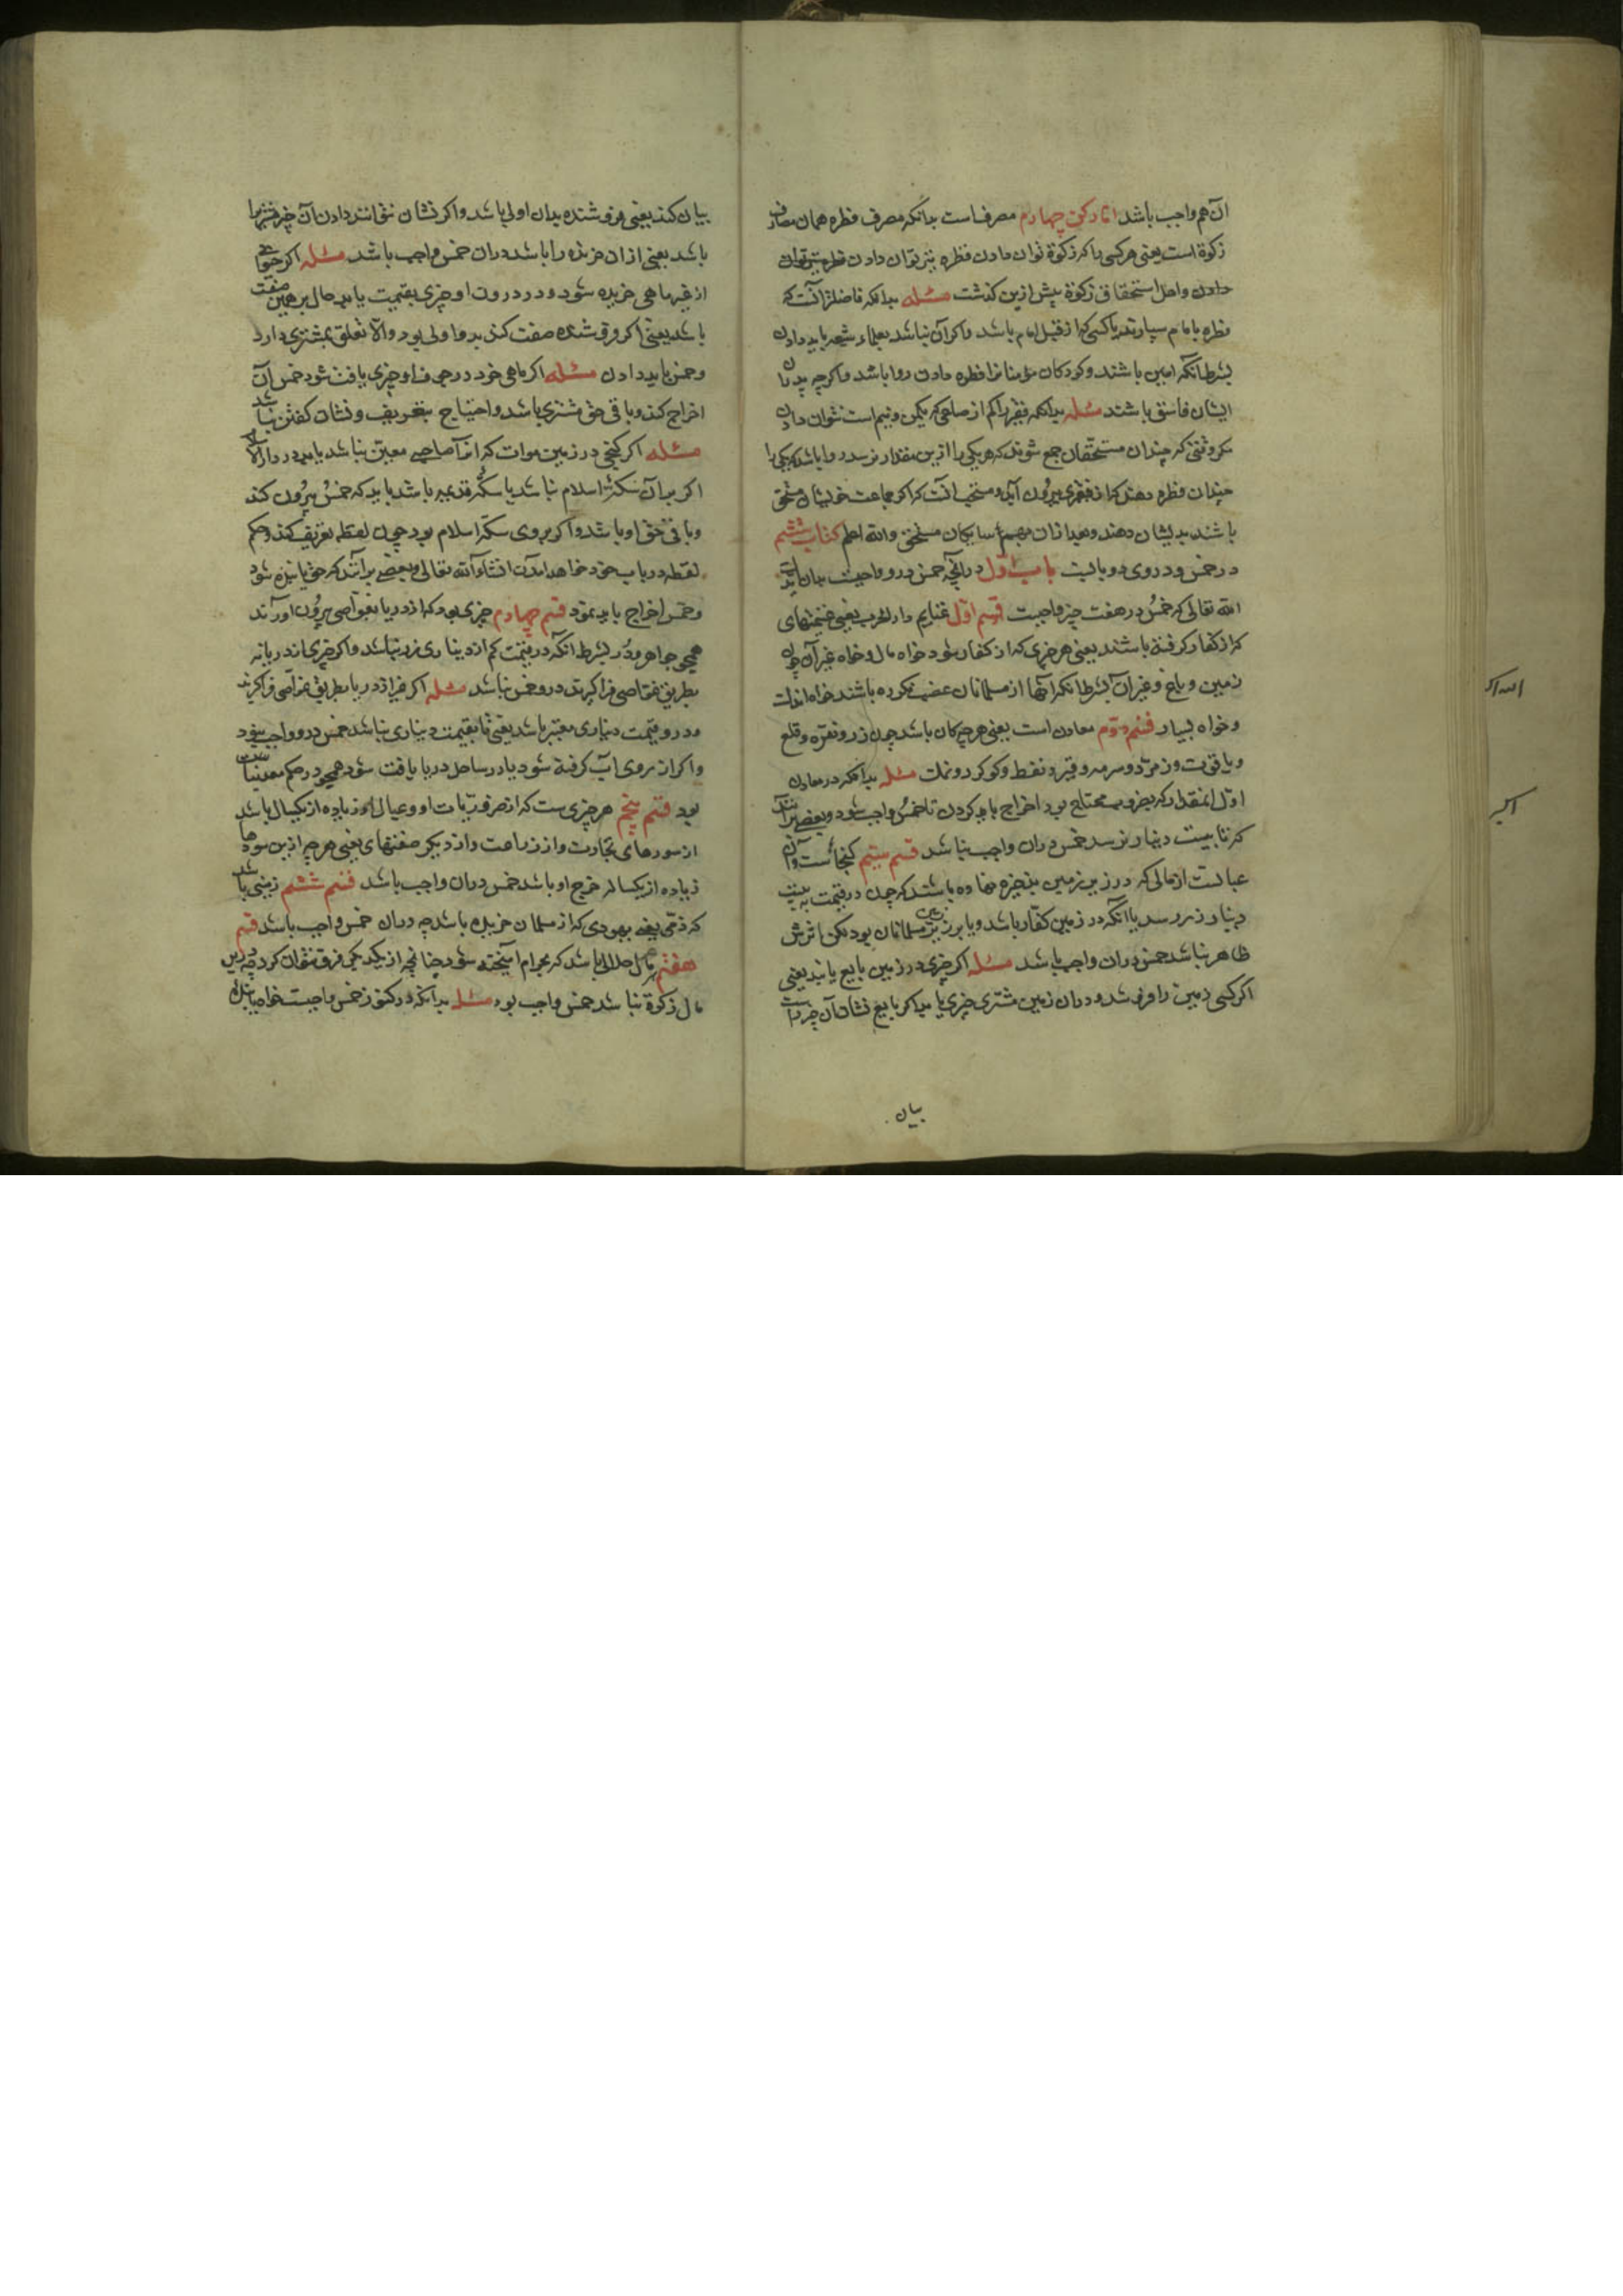 آن هم واجب باشد اما رکن چهارم مصرفست بدانکه مصرف فطره همان مصارف
زکوة است یعنی هر کسی را که زکوة توان دادن فطره نیز توان دادن
دادن واهل استحقاق زکوة پیش ازین کذشت مسئله بدانکه فاضلتر آنست که
فطره بامام سپارند یا کسی که از قبل امام باشد واکر آن نباشد بعلماء شیعه باید دادن
بشرط آنکه امین باشند وکودکان مؤمنانرا فطره دادن روا باشد واکرچه پدران
ایشان فاسق باشند مسئله بدانکه فقیر را کم از صاعی که یکمن ونیم است نتوان دادن
مکر وقتی که چندان مستحقان جمع شوند که هر یکی را ازین مقدار نرسد روا باشد که یکی را
چندان فطره دهند که از فقیری بیرون آید ومستحب آنست که اکر جماعت خویشان مستحق
باشند بدیشان دهند وبعد از آن همسایکان مستحق والله اعلم کتاب ششم
در خمس ودر وی دو بابست باب اول در آنچه خمس درو واجبست بدان
الله تعالی که خمس در هفت چیز واجبست قسم اول غنایم دار الحرب یعنی غنیمتهای
که از کفار کرفته باشند یعنی هر چیزی که از کفار بود خواه مال وخواه غیر آن چون
زمین وباغ وغیر آن بشرط آنکه آنها از مسلمانان غصب نکرده باشند خواه اندک
وخواه بسیار قسم دوم معادن است یعنی هر چه کان باشد چون زر ونقره وقلع
ویاقوت وزمرد وسرمه وقیر ونفط وکوکرد ونمک مسئله بدانکه در معادن
اول آنمقدار که بخرج محتاج بود اخراج باید کردن تا خمس واجب شود وبعضی برآنند
که تا بیست دینار نرسد خمس دران واجب نباشد قسم سیم کنجهاست وآن
عبارتست از مالی که در زیر زمین بنجیزه نهاده باشند که چون در قیمت به بیست
دینار زر رسد یا آنکه در زمین کفار باشد ویا بر زیر زمین مسلمانان بود لکن اثرش
ظاهر نباشد خمس دران واجب باشد مسئله اکر چیزی در زمین بایع یابند یعنی
اکر کسی زمین را فروشد ودران زمین مشتری چیزی یابد اکر بایع نشان آن چیز راست
بیان
بیان کند یعنی فروشنده بدان اولی باشد واکر نشان نتوانند دادن آن چیز مشتریرا
باشد یعنی از آن خرنده را باشد دران خمس واجب باشد مسئله اکر حیوانی
از غیر ماهی خریده شود ودر درون او چیزی بقیمت یابد حال بر همین صفت
باشد یعنی اکر فروشنده صفت کند بدو اولی بود والا تعلق بمشتری دارد
وخمس باید دادن مسئله اکر ماهی خرد در جوف او چیزی یافت شود خمس آن
اخراج کند وباقی حق مشتری باشد واحتیاج بتعریف ونشان کفتن نباشد
مسئله اکر کنجی در زمین موات که آنرا صاحبی معین نباشد یابد در دار الاسلام
اکر بدآن سکه اسلام نباشد یا سکه قدیمه باشد باید که خمس بیرون کند
وباقی حق او باشد واکر بروی سکه اسلام بود چون لقطه تعریف کند وحکم
لقطه در باب خود خواهد آمدن انشاء الله تعالی وبعضی برآنند که حق یابنده شود
وخمس اخراج باید نمود قسم چهارم چیزی بود که از دریا بغواصی بیرون آورند
همچو جواهر ودر بشرط آنکه در قیمت کم از دیناری زر نباشد واکر چیزی اندر یا نه
بطریق غواصی فراکیرند درو خمس نباشد مسئله اکر عنبر از دریا بطریق غواصی فراکیرند
ودرو قیمت دیناری معتبر باشد یعنی تا بقیمت دیناری نباشد خمس درو واجب نبود
واکر از روی آب کرفته شود یا در ساحل دریا یافت شود همچو در حکم معدنیات
بود قسم پنجم هر چیزی ست که از صرف ربات او وعیال او زیاده از یکسال باشد
از سودهای تجارت واز زراعت واز دیکر صفتهای یعنی هر چه ازین سودها
زیاده از یکساله خرج او باشد خمس دران واجب باشد قسم ششم زمینی باشد
که ذمی یعنی یهودی که از مسلمان خریده باشد چه دران خمس واجب باشد قسم
هفتم مال حلال باشد که بحرام آمیخته شود چنانچه از یکدیکر فرق نتوان کرد
مال زکوة نباشد خمس واجب بود مسئله بدآنکه در کنوز خمس واجبست خواه یابنده
الله اکبر
اکبر